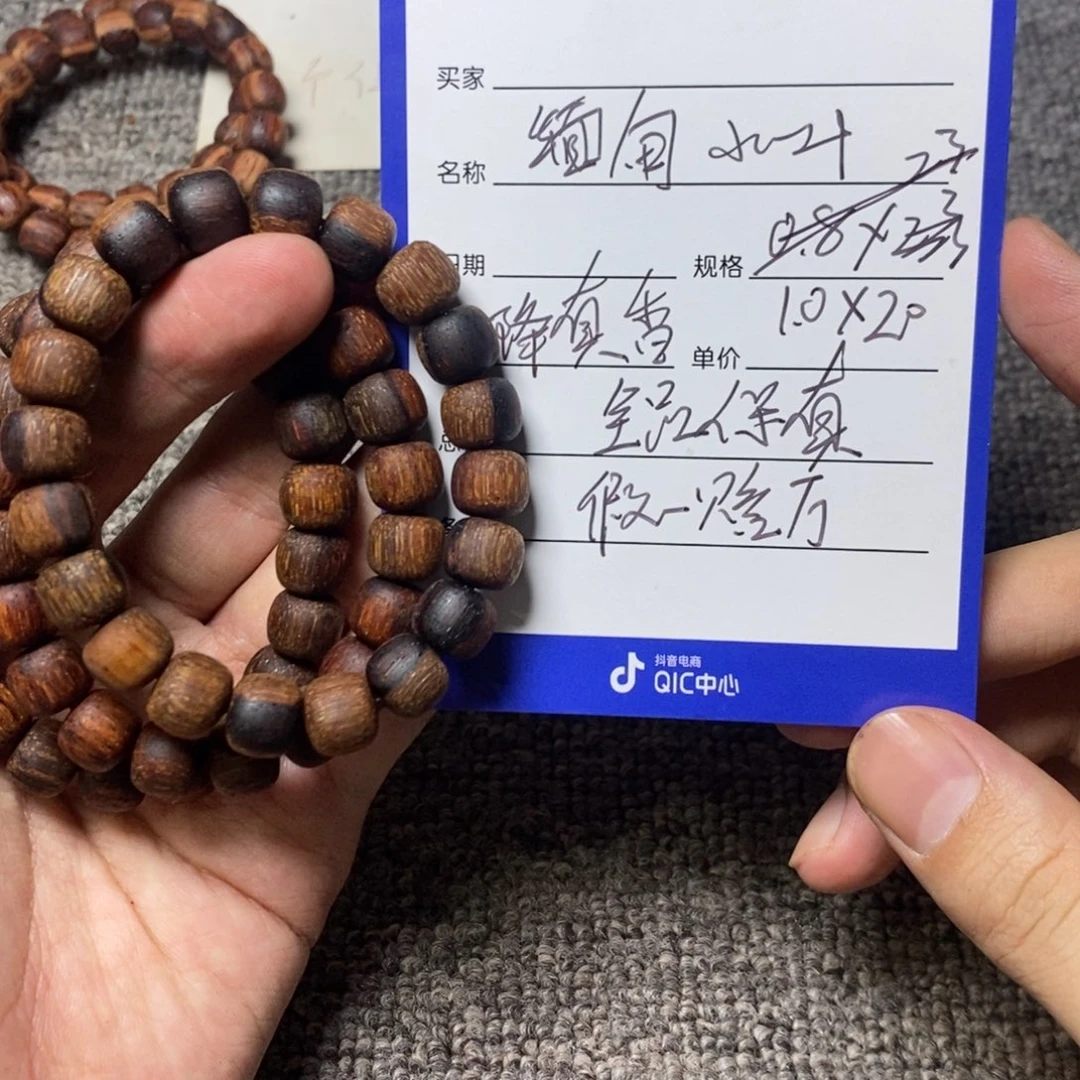 买家
名称 缅甸 小叶
日期 规格 0.8X2
降真香 1.0X20
单价
全品保真
总
假一赔万
抖音电商
QIC中心